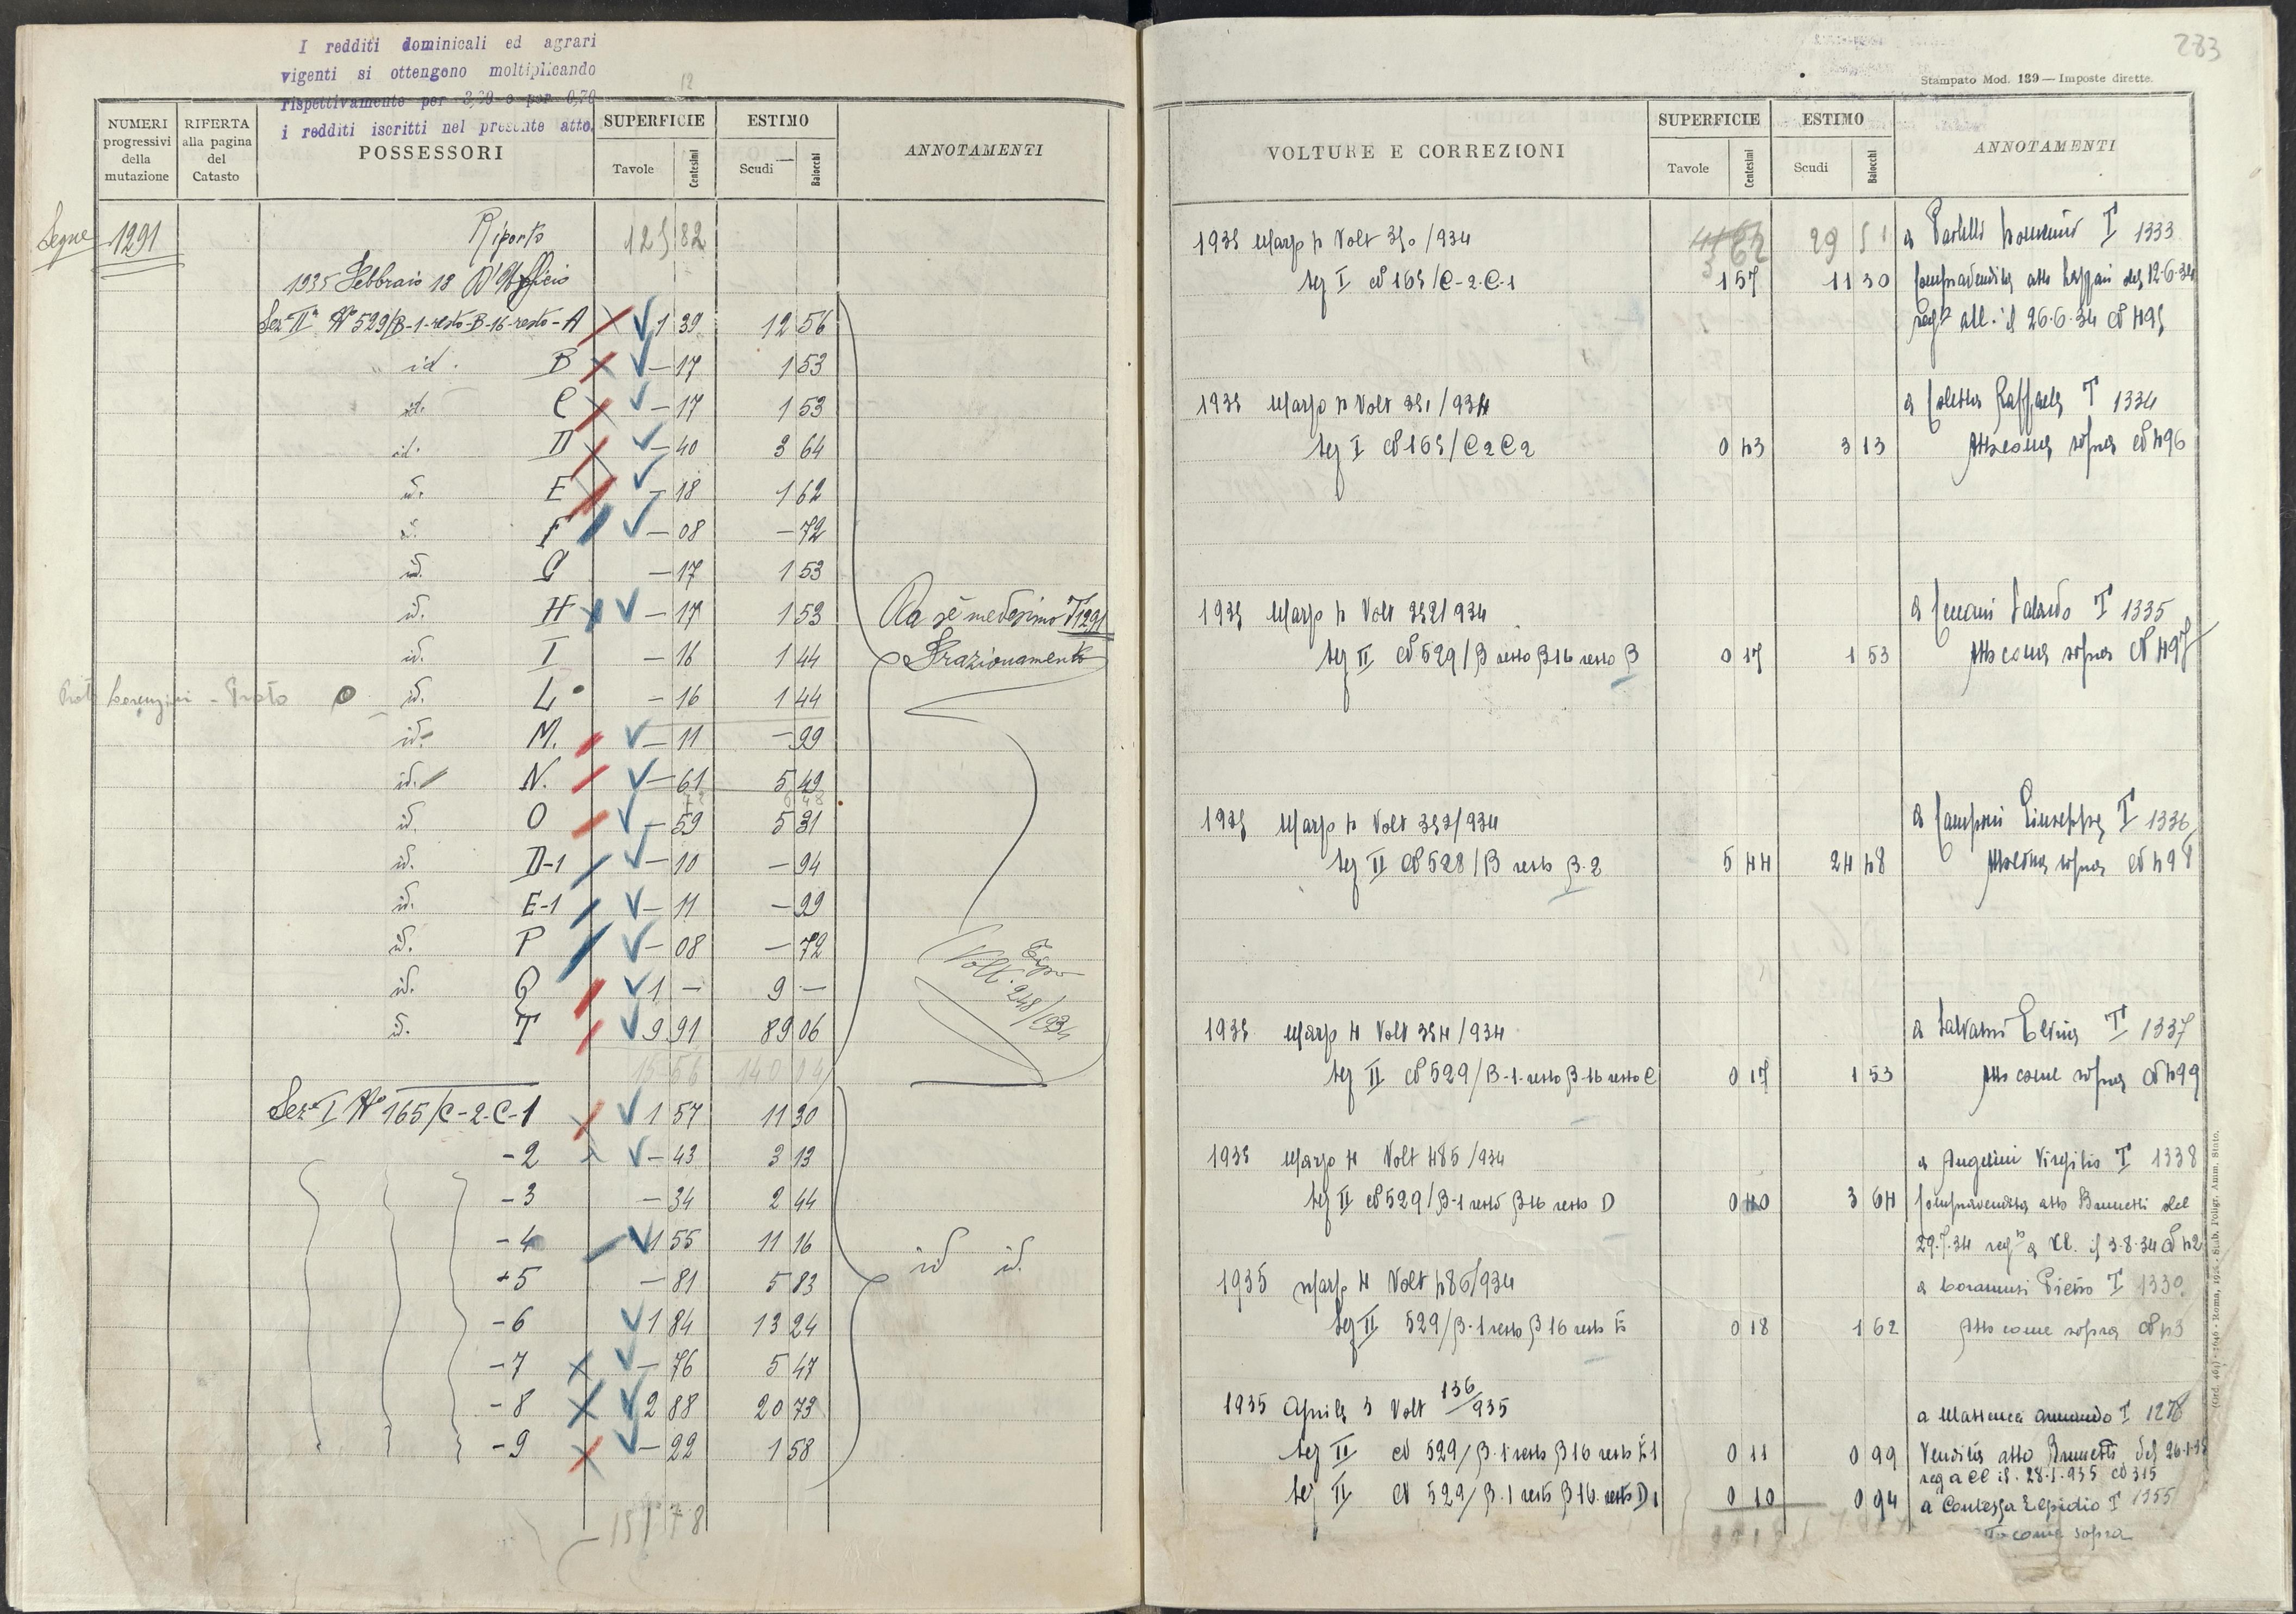 I redditi dominicali ed agrari
vigenti si ottengono moltiplicando
rispettivamente per 3,20 e per 0,70
i redditi iscritti nel presente atto.
12
NUMERI progressivi della mutazione
RIFERTA alla pagina del Catasto
POSSESSORI
SUPERFICIE
Tavole Centesimi
ESTIMO
Scudi Baiocchi
ANNOTAMENTI
Segue 1291 Riporto 125 82
1935 Febbraio 18 D'Ufficio
Sez IIa No 529/B-1-resto-B-16-resto-A 1 39 12 56
id. B — 17 1 53
id. C — 17 1 53
id. D — 40 3 64
id. E — 18 1 62
id. F — 08 — 72
id. G — 17 1 53
id. H — 17 1 53 Da sè medesimo T 1291
id. I — 16 1 44 Frazionamento
Lorenzini - Proto id. L — 16 1 44
id. M. — 11 — 99
id. N. — 61 5 49
id. O — 59 5 31
id. D-1 — 10 — 94
id. E-1 — 11 — 99
id. P — 08 — 72
id. Q 1 — 9 —
id. T 9 91 89 06
Tipo Volt. 248/934
15 56 140 04
Sez I No 165/C-2-C-1 1 57 11 30
-2 — 43 3 13
-3 — 34 2 44
-4 1 55 11 16
-5 — 81 5 83 id id.
-6 1 84 13 24
-7 — 76 5 47
-8 2 88 20 73
-9 — 22 1 58
151 78
283
Stampato Mod. 139 — Imposte dirette.
VOLTURE E CORREZIONI
SUPERFICIE
Tavole Centesimi
ESTIMO
Scudi Baiocchi
ANNOTAMENTI
1935 Marzo 4 Volt 350/934 29 51 a T 1333
Sez I No 165/C-2-C-1 1 57 11 30 Compravendita atto del 12-6-34
reg. all. il 26-6-34 No 495
1935 Marzo 4 Volt 351/934 a Coletta Raffaele T 1334
Sez I No 165/C2C2 0 43 3 13 Atto come sopra No 496
1935 Marzo 4 Volt 352/934 a T 1335
Sez II No 529/B resto B16 resto B 0 17 1 53 Atto come sopra No 497
1935 Marzo 4 Volt 353/934 a Giuseppe T 1336
Sez II No 528/B resto B-2 5 44 24 48 Atto come sopra No 498
1935 Marzo 4 Volt 354/934 a T 1337
Sez II No 529/B-1-resto B-16 resto C 0 17 1 53 Atto come sopra No 499
1935 Marzo 4 Volt 485/934 a Angelini Virgilio T 1338
Sez II No 529/B-1 resto B16 resto D 0 40 3 64 Compravendita atto Brunetti del
29-7-34 reg. a Cl. il 3-8-34 No 42
1935 Marzo 4 Volt 486/934 a Pietro T 1330
Sez II 529/B-1 resto B16 resto E 0 18 1 62 Atto come sopra No 43
1935 Aprile 3 Volt 136/935 a Armando T 1278
Sez II No 529/B-1 resto B16 resto E1 0 11 0 99 Vendita atto Brunetti del 26-1-35
reg a Cl il. 28-1-935 No 315
Sez II No 529/B-1 resto B16 resto D1 0 10 0 94 a Contessa Elpidio T 1355
come sopra